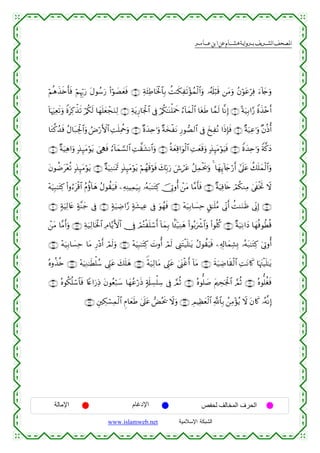 المصحف الشريف برواية هشام عن ابن عامر
وَجَآءَ فِرۡعَوۡنُ وَمَن قَبۡلَهُۥ وَٱلۡمُؤۡتَفِكَٰتُ بِٱلۡخَاطِئَةِ فَعَصَوۡاْ رَسُولَ رَبِّهِمۡ فَأَخَذَهُمۡ
أَخۡذَةٗ رَّابِيَةً إِنَّا لَمَّا طَغَا ٱلۡمَآءُ حَمَلۡنَٰكُمۡ فِي ٱلۡجَارِيَةِ لِنَجۡعَلَهَا لَكُمۡ تَذۡكِرَةٗ وَتَعِيَهَآ
أُذُنٞ وَٰعِيَةٞ فَإِذَا نُفِخَ فِي ٱلصُّورِ نَفۡخَةٞ وَٰحِدَةٞ وَحُمِلَتِ ٱلۡأَرۡضُ وَٱلۡجِبَالُ فَدُكَّتَا
دَكَّةٗ وَٰحِدَةٗ فَيَوۡمَئِذٖ وَقَعَتِ ٱلۡوَاقِعَةُ وَٱنشَقَّتِ ٱلسَّمَآءُ فَهِيَ يَوۡمَئِذٖ وَاهِيَةٞ
وَٱلۡمَلَكُ عَلَىٰٓ أَرۡجَآئِهَا وَيَحۡمِلُ عَرۡشَ رَبِّكَ فَوۡقَهُمۡ يَوۡمَئِذٖ ثَمَٰنِيَةٞ يَوۡمَئِذٖ تُعۡرَضُونَ
لَا تَخۡفَىٰ مِنكُمۡ خَافِيَةٞ فَأَمَّا مَنۡ أُوتِيَ كِتَٰبَهُۥ بِيَمِينِهِۦ فَيَقُولُ هَآؤُمُ ٱقۡرَءُواْ كِتَٰبِيَهۡ
إِنِّي ظَنَنتُ أَنِّي مُلَٰقٍ حِسَابِيَهۡ فَهُوَ فِي عِيشَةٖ رَّاضِيَةٖ فِي جَنَّةٍ عَالِيَةٖ
قُطُوفُهَا دَانِيَةٞ كُلُواْ وَٱشۡرَبُواْ هَنِيٓـَٔۢا بِمَآ أَسۡلَفۡتُمۡ فِي ٱلۡأَيَّامِ ٱلۡخَالِيَةِ وَأَمَّا مَنۡ
أُوتِيَ كِتَٰبَهُۥ بِشِمَالِهِۦ فَيَقُولُ يَٰلَيۡتَنِي لَمۡ أُوتَ كِتَٰبِيَهۡ وَلَمۡ أَدۡرِ مَا حِسَابِيَهۡ
يَٰلَيۡتَهَا كَانَتِ ٱلۡقَاضِيَةَ مَآ أَغۡنَىٰ عَنِّي مَالِيَهۡ هَلَكَ عَنِّي سُلۡطَٰنِيَهۡ خُذُوهُ
فَغُلُّوهُ ثُمَّ ٱلۡجَحِيمَ صَلُّوهُ ثُمَّ فِي سِلۡسِلَةٖ ذَرۡعُهَا سَبۡعُونَ ذِرَاعٗا فَٱسۡلُكُوهُ
إِنَّهُۥ كَانَ لَا يُؤۡمِنُ بِٱللَّهِ ٱلۡعَظِيمِ وَلَا يَحُضُّ عَلَىٰ طَعَامِ ٱلۡمِسۡكِينِ
الحرف المخالف لحفص الإدغام الإمالة
الشبكة الإسلامية www.islamweb.net